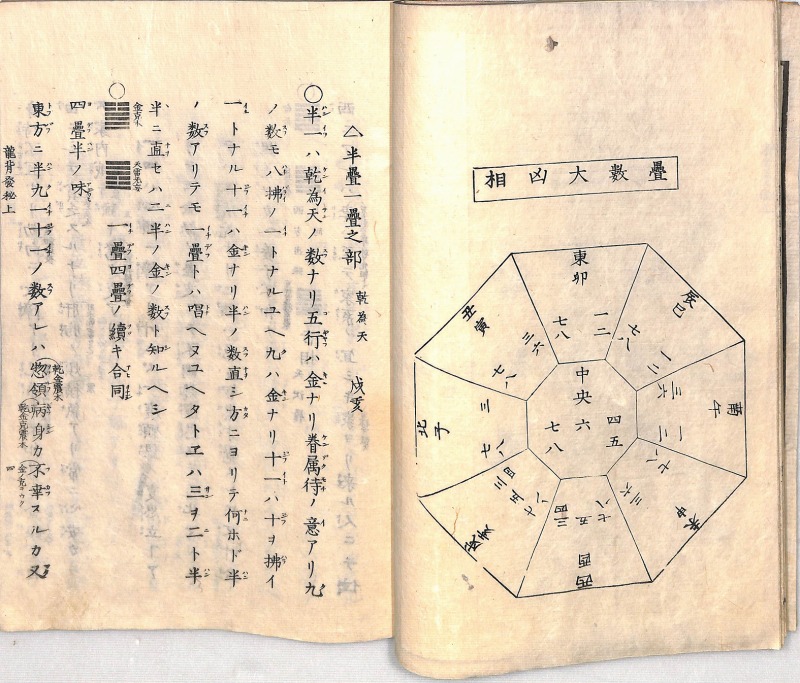 疊數大凶相
東卯
一二
七八
辰巳
七八
一二
南午
三六
一二
未申
七八
三六
西酉
三四
五
七八
戌亥
三四
五
七八
北子
三
七八
丑寅
三六
七八
中央
四五
六
七八
△半疊一疊之部 乾為天 戌亥
○半一ハ乾為天ノ数ナリ五行ハ金ナリ眷属待ノ意アリ九
ノ数モ八拂ノ一トナルユヘ九ハ金ナリ十一ハ十ヲ拂イ
一トナル十一ハ金ナリ半ノ数直シ方ニヨリテ何ホド半
ノ数アリテモ一疊トハ唱ヘヌユヘタトエハ三ヲ二ト半
半ニ直セハ二半ノ金ノ数ト知ルヘシ
○ 金克木 天雷无妄 一疊四疊ノ續キ合同
四疊半ノ味
東方ニ半九一十一ノ数アレハ惣領病身カ不幸スルカ又
乾金震木
乾金克震木
龍背發秘上
四